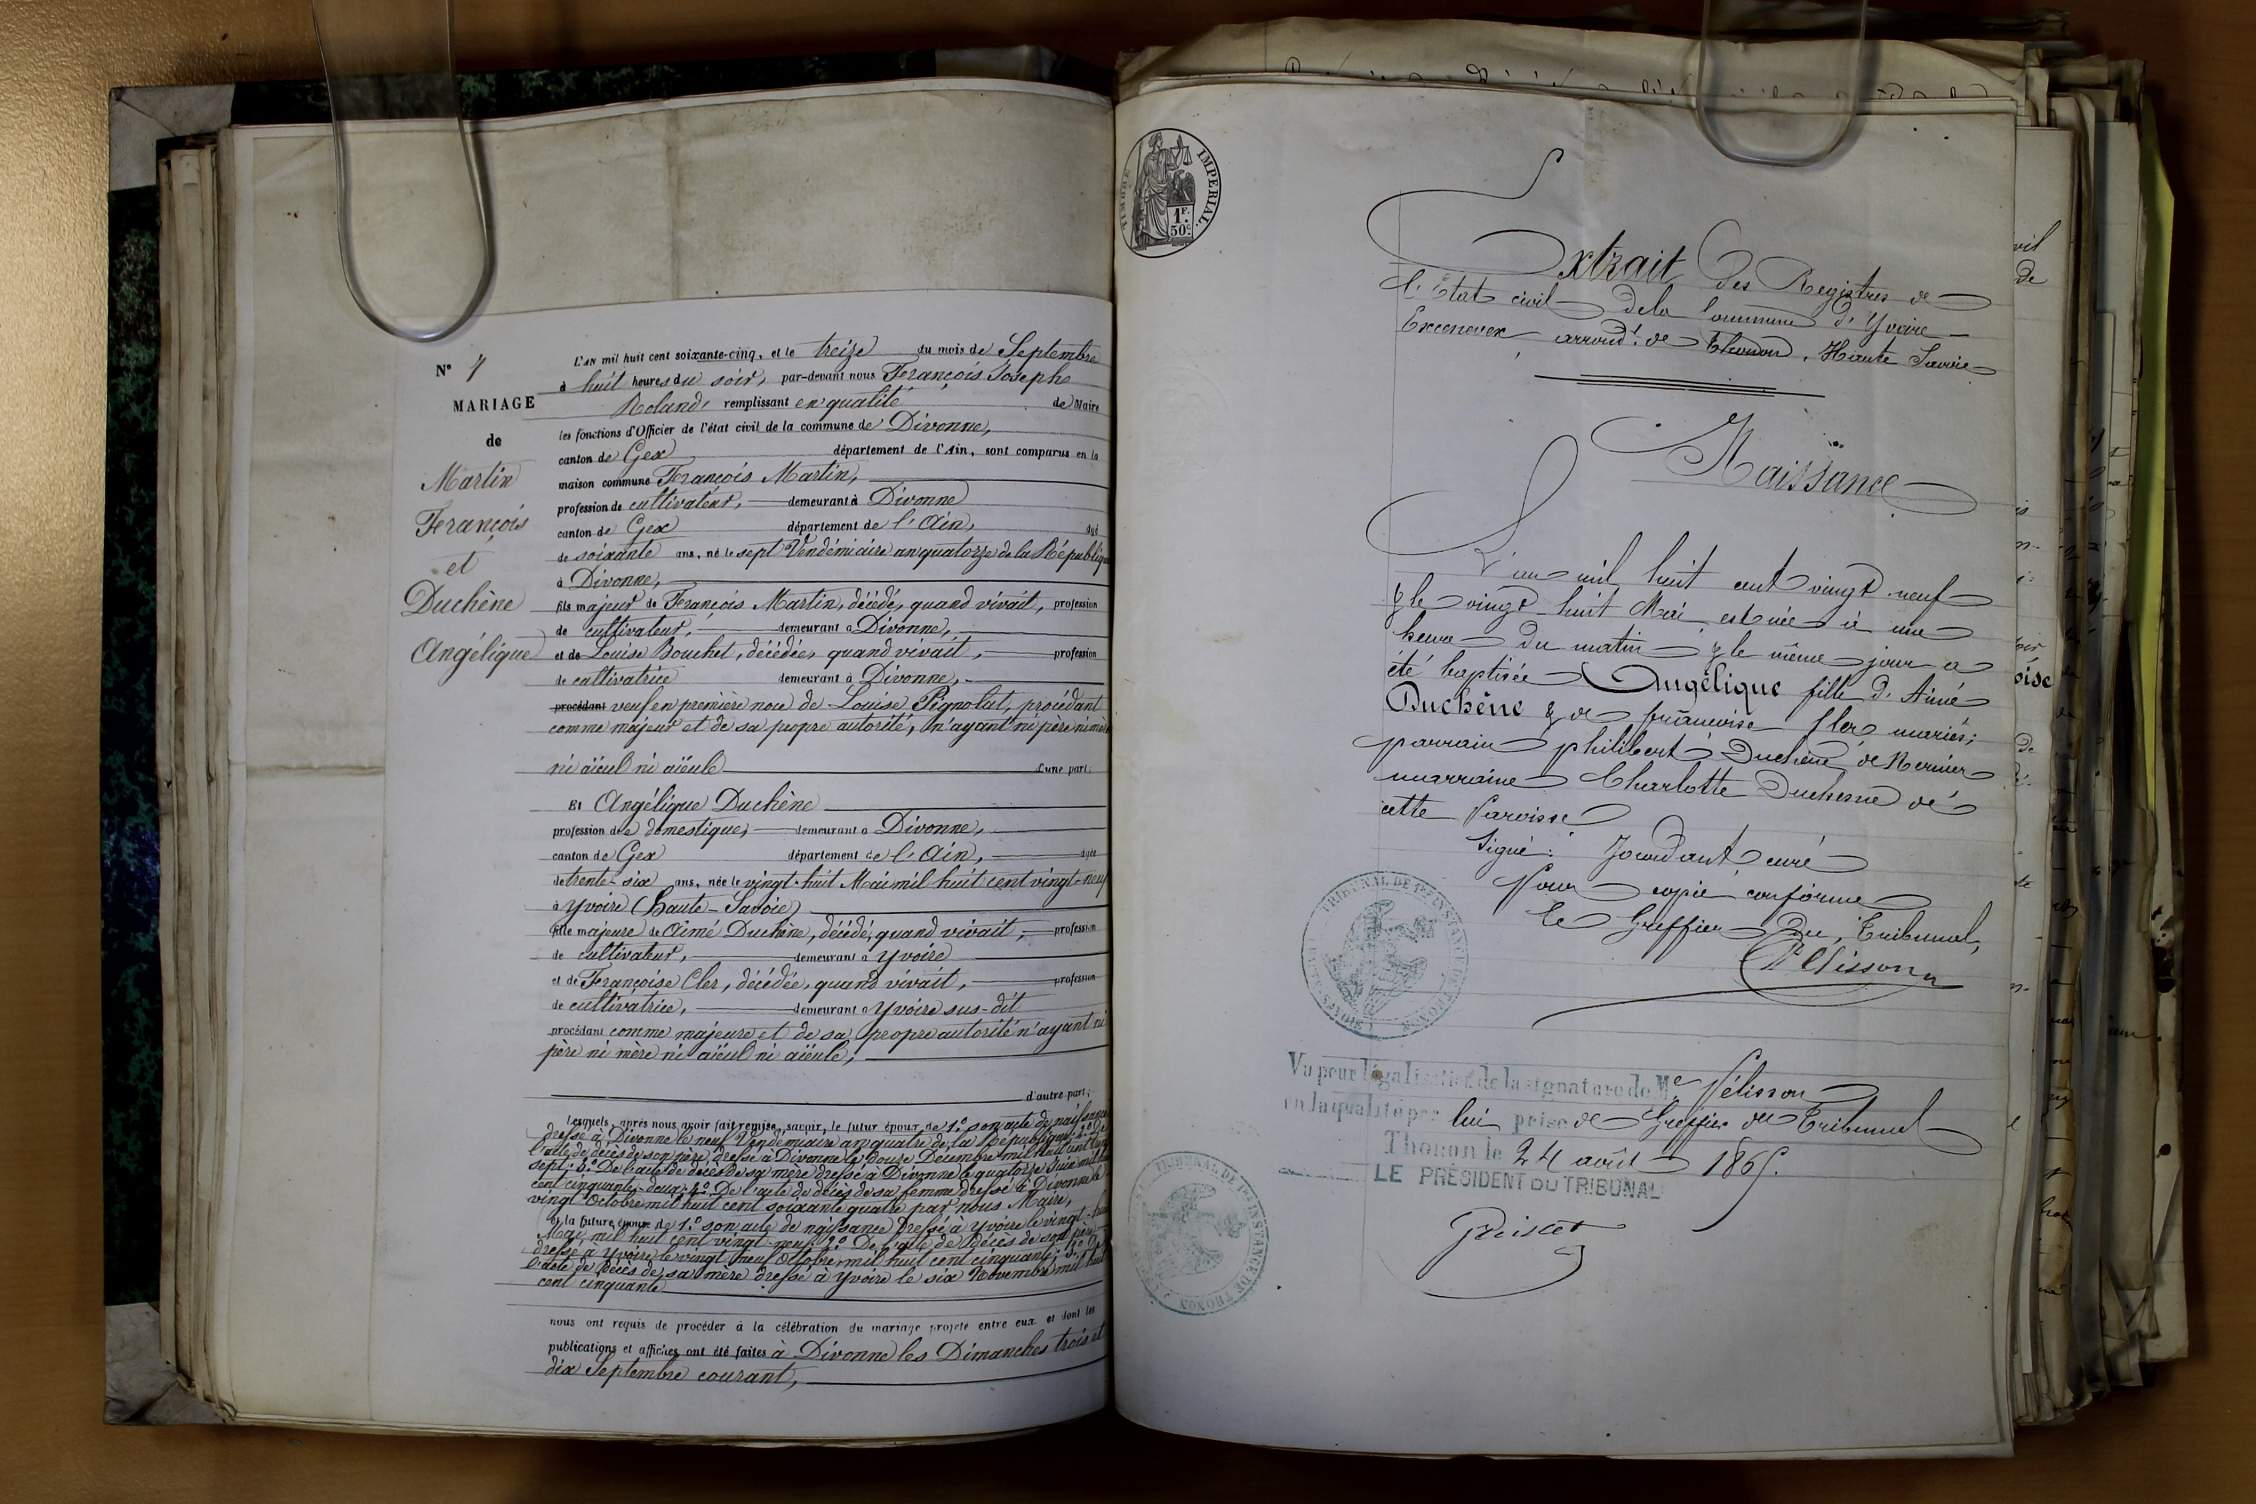 N° 7
MARIAGE
de
Martin
François
et
Duchène
Angélique
L'AN mil huit cent soixante-cinq, et le treize du mois de Septembre
à huit heures du soir, par-devant nous François Joseph
Roland, remplissant en qualité de Maire
les fonctions d'Officier de l'état civil de la commune de Divonne,
canton de Gex département de l'Ain, sont comparus en la
maison commune François Martin,
profession de cultivateur, demeurant à Divonne
canton de Gex département de l'Ain, âgé
de soixante ans, né le sept Vendémiaire an quatorze de la Républiq
à Divonne,
fils majeur de François Martin, décédé, quand vivait, profession
de cultivateur, demeurant à Divonne,
et de Louise Bouchet, décédée, quand vivait, profession
de cultivatrice demeurant à Divonne,
procédant veuf en première noce de Louise Pignolat, procédant
comme majeur et de sa propre autorité, n'ayant ni père ni mère
ni aïeul ni aïeule d'une part;
Et Angélique Duchène
profession de domestique, demeurant à Divonne,
canton de Gex département de l'Ain, âgée
de trente-six ans, née le vingt-huit Mai mil huit cent vingt-neuf
à Yvoire (Haute-Savoie)
fille majeure de Aimé Duchène, décédé, quand vivait, profession
de cultivateur, demeurant à Yvoire
et de Françoise Cler, décédée, quand vivait, profession
de cultivatrice, demeurant à Yvoire sus-dit
procédant comme majeure et de sa propre autorité n'ayant ni
père ni mère ni aïeul ni aïeule,
d'autre part;
Lesquels, après nous avoir fait remise, savoir, le futur époux de 1.° son acte de naissance
dressé à Divonne le neuf Vendémiaire an quatre de la République; 2.° de
l'acte de décès de son père dressé à Divonne le douze Décembre mil huit cent
sept; 3.° De l'acte de décès de sa mère dressé à Divonne le quatorze Juin mil huit
cent cinquante-deux; 4.° De l'acte de décès de sa femme dressé à Divonne le
vingt Octobre mil huit cent soixante quatre par nous Maire,
Et la future épouse de 1.° son acte de naissance dressé à Yvoire le vingt-huit
Mai mil huit cent vingt-neuf; 2.° De l'acte de décès de son père
dressé à Yvoire le vingt neuf Octobre mil huit cent cinquante; 3.° de
l'acte de décès de sa mère dressé à Yvoire le six Novembre mil huit
cent cinquante
nous ont requis de procéder à la célébration du mariage projeté entre eux et dont les
publications et affiches ont été faites à Divonne les Dimanches trois et
dix Septembre courant,
TIMBRE IMPERIAL.
1F.
50c.
Extrait Des Registres de
l'Etat civil de la Commune d'Yvoire
Excenevex arrond.t de Thonon, Haute Savoie
Naissance
L'an mil huit cent vingt neuf
& le vingt huit Mai est née à une
heure du matin & le même jour a
été baptisée Angélique fille d'Aimé
Duchêne & de françoise Cler mariés;
parrain philibert Duchêne de Nernier
marraine Charlotte Duchesne de
cette Paroisse
Signé: Jourdant curé
Pour copie conforme
Le Greffier Du Tribunal,
Pélisson
TRIBUNAL DE 1re INSTANCE DE THONON
Vu pour légalisation de la signature de Me Pélisson
en la qualité par lui prise de Greffier du Tribunal
Thonon le 24 août 1865.
LE PRÉSIDENT DU TRIBUNAL
TRIBUNAL DE 1re INSTANCE DE THONON